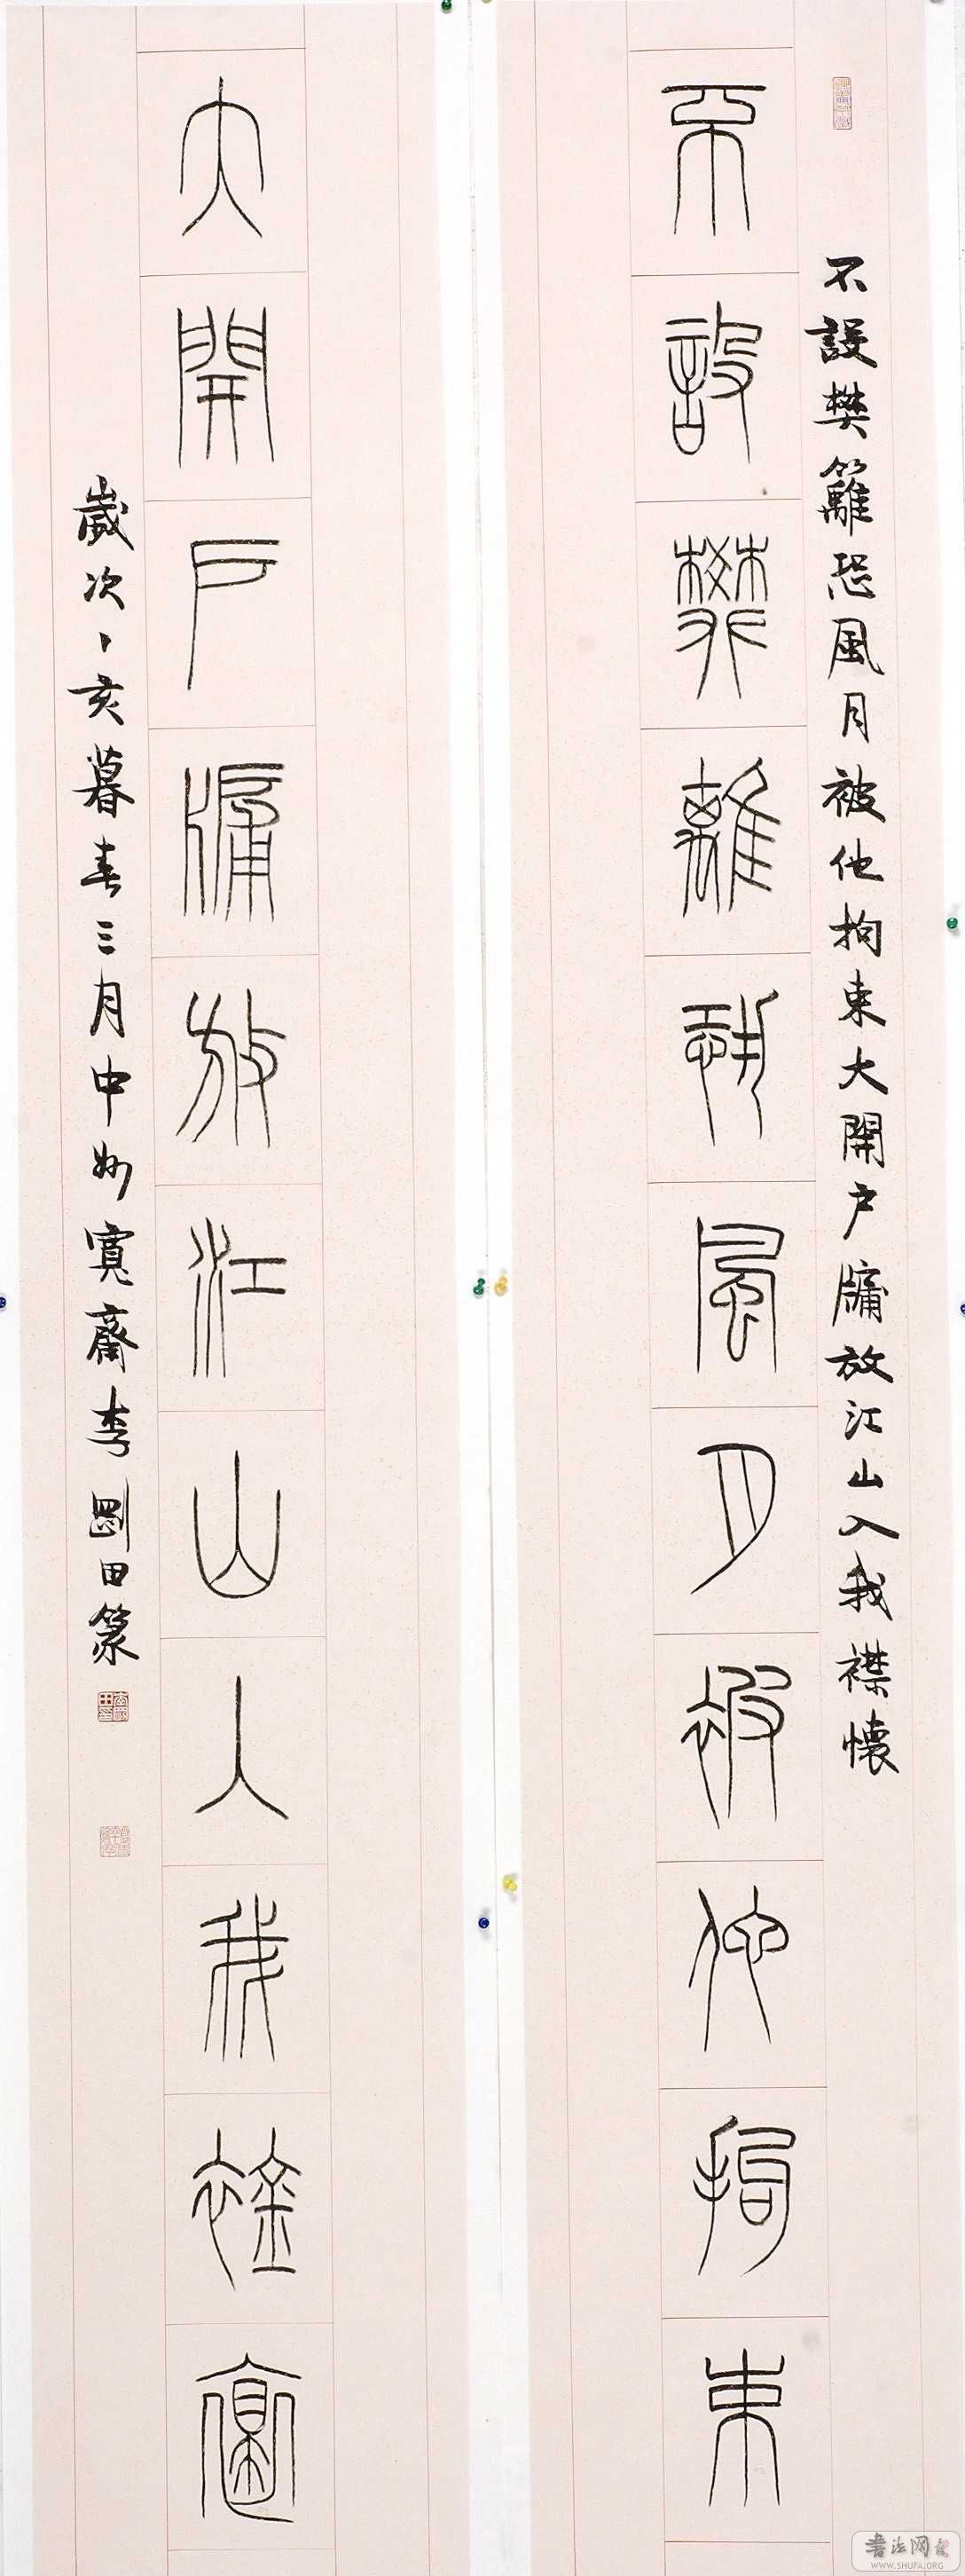 不設樊籬恐風月被他拘束大開户牖放江山入我襟懷
不設樊離恐風月被他拘束
大開户牖放江山入我襟懷
歲次丁亥暮春三月中州寬齋李剛田篆
书法网
WWW.SHUFA.ORG